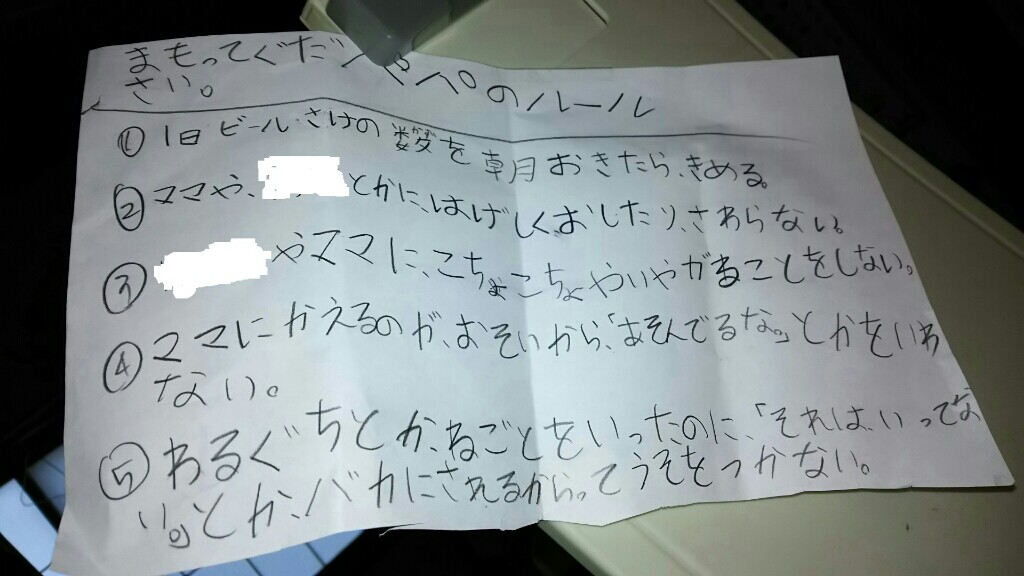 まもってぐだ
さい。
のルール
① 1日 ビール・さけの 数を 朝おきたら、きめる。
② ママや、とかに、はげしくおしたり、さわらない。
③ やママに、こちょこちょやいやがることをしない。
④ ママにかえるのが、おそいから、「あそんでるな。」とかをいわ
ない。
⑤ わるぐちとか、ねごとをいったのに、「それは、いってな
い。」とか、バカにされるからってうそをつかない。